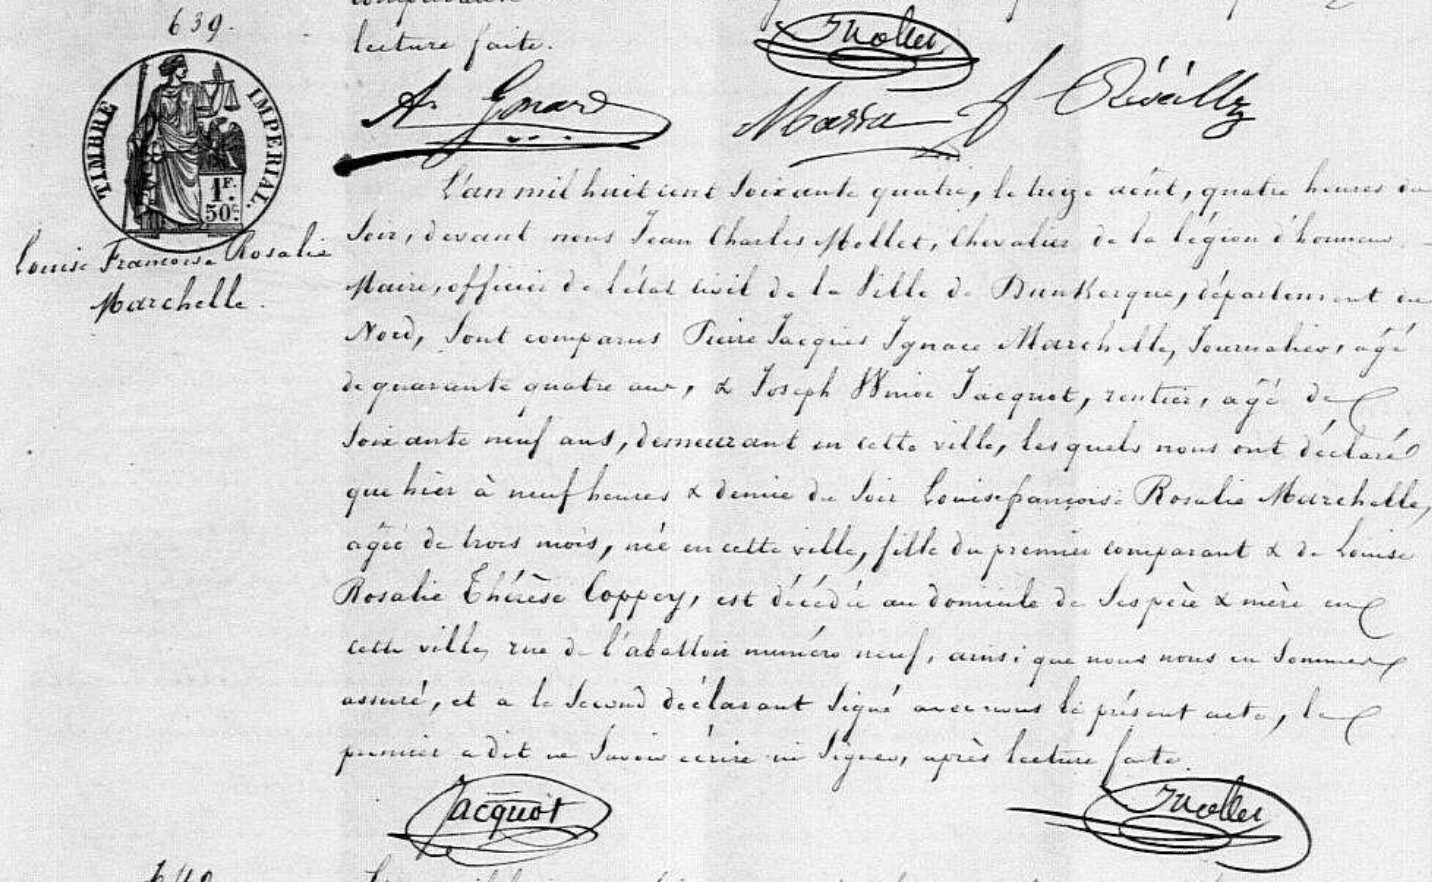 639.
lecture faite.
Mollet
A. Gmard
Marra
Réveille
TIMBRE IMPERIAL.
1F.
50c.
Louise Francoise Rosalie
Marchelle.
L'an mil huit cent soixante quatre, le treize août, quatre heures du
soir, devant nous Jean Charles Mollet, Chevalier de la légion d'honneur
Maire, officier de l'état civil de la Ville de Dunkerque, département du
Nord, sont comparus Pierre Jacques Ignace Marchelle, Journalier, âgé
de quarante quatre ans, & Joseph Winoc Jacquot, rentier, âgé de
soixante neuf ans, demeurant en cette ville, lesquels nous ont déclaré
que hier à neuf heures & demie du soir Louise françoise Rosalie Marchelle,
agée de trois mois, née en cette ville, fille du premier comparant & de Louise
Rosalie Thérèse Coppey, est décédée au domicile de ses père & mère en
cette ville, rue de l'abattoir numéro neuf, ainsi que nous nous en sommes
assuré, et a le second déclarant signé avec nous le présent acte, le
premier a dit ne savoir écrire ni signer, après lecture faite.
Jacquot
Mollet